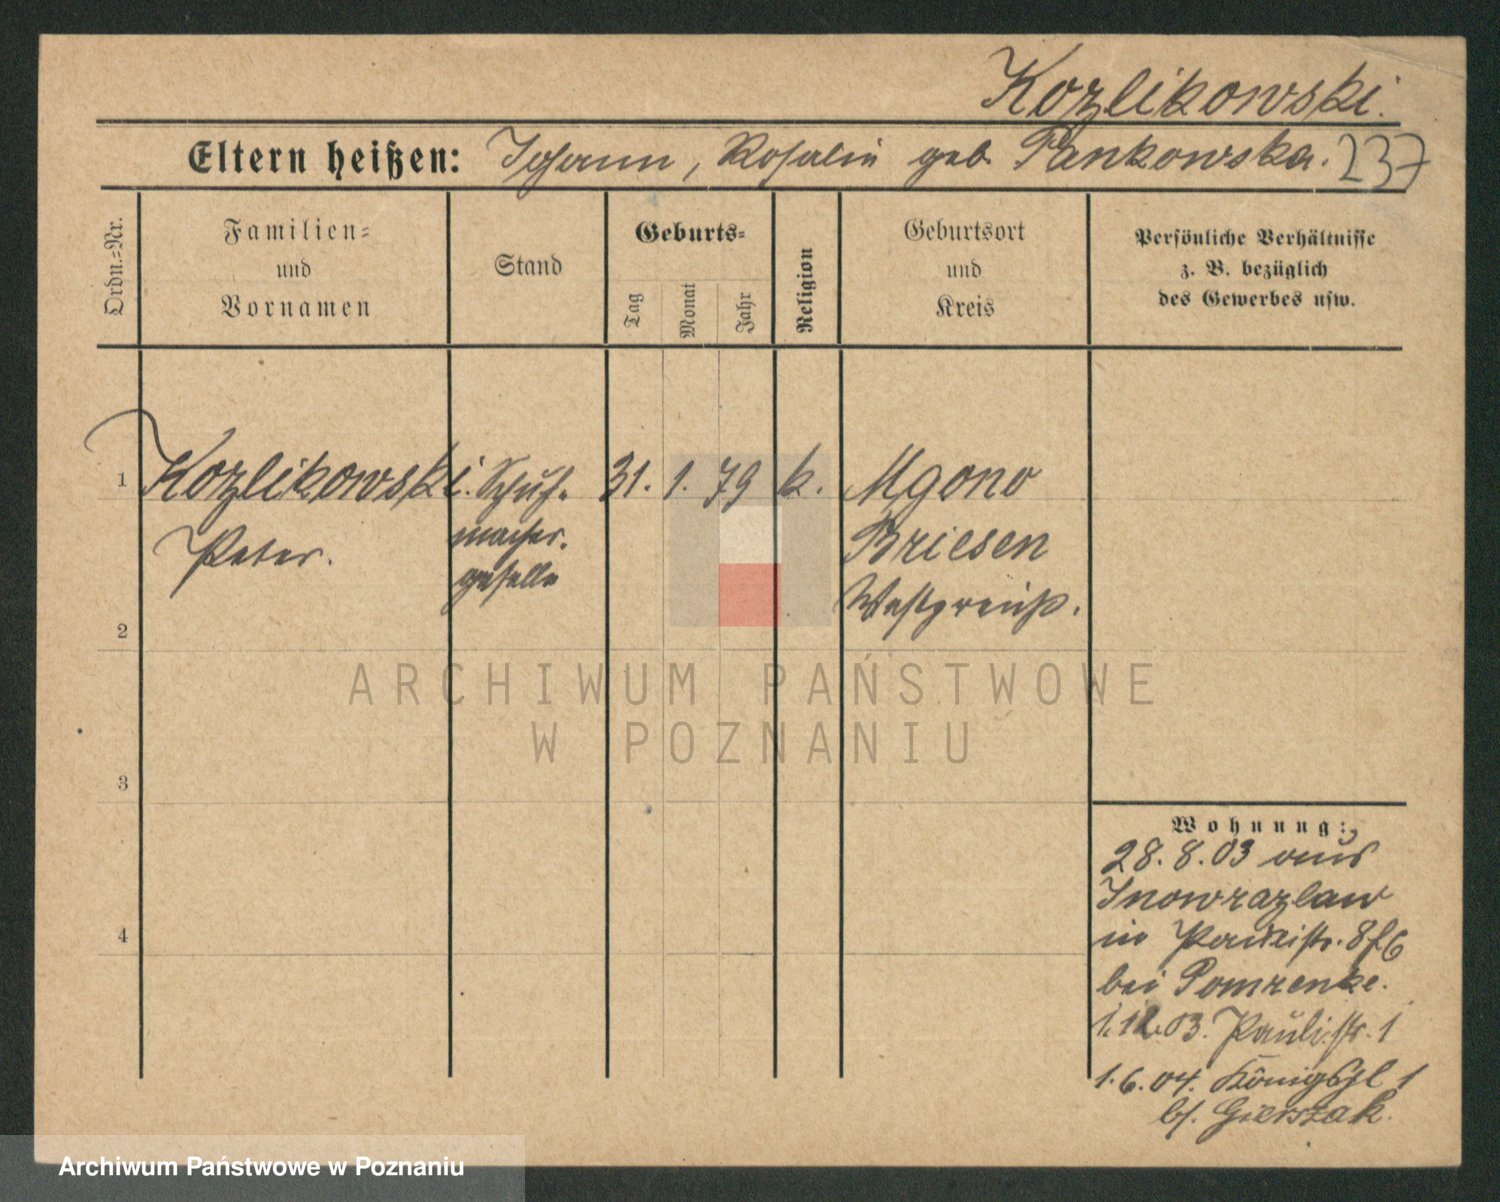 Kozlikowski.
Eltern heißen: Johann, Rosalie geb. Pankowska. 237
Ordn.-Nr.
Familien-
und
Vornamen
Stand
Geburts-
Tag
Monat
Jahr
Religion
Geburtsort
und
Kreis
Persönliche Verhältnisse
z. B. bezüglich
des Gewerbes usw.
1 Kozlikowski. Schuh- 31. 1. 79 k. Mgono
Peter. macher. Briesen
geselle Westpreuß.
2
3
4
ARCHIWUM PAŃSTWOWE
W POZNANIU
Wohnung:
28.8.03 aus
Inowrazlaw
in
bei Pomrenke.
03. Paulistr. 1
1.6.04. Königspl 1
b/. Gierszak.
Archiwum Państwowe w Poznaniu